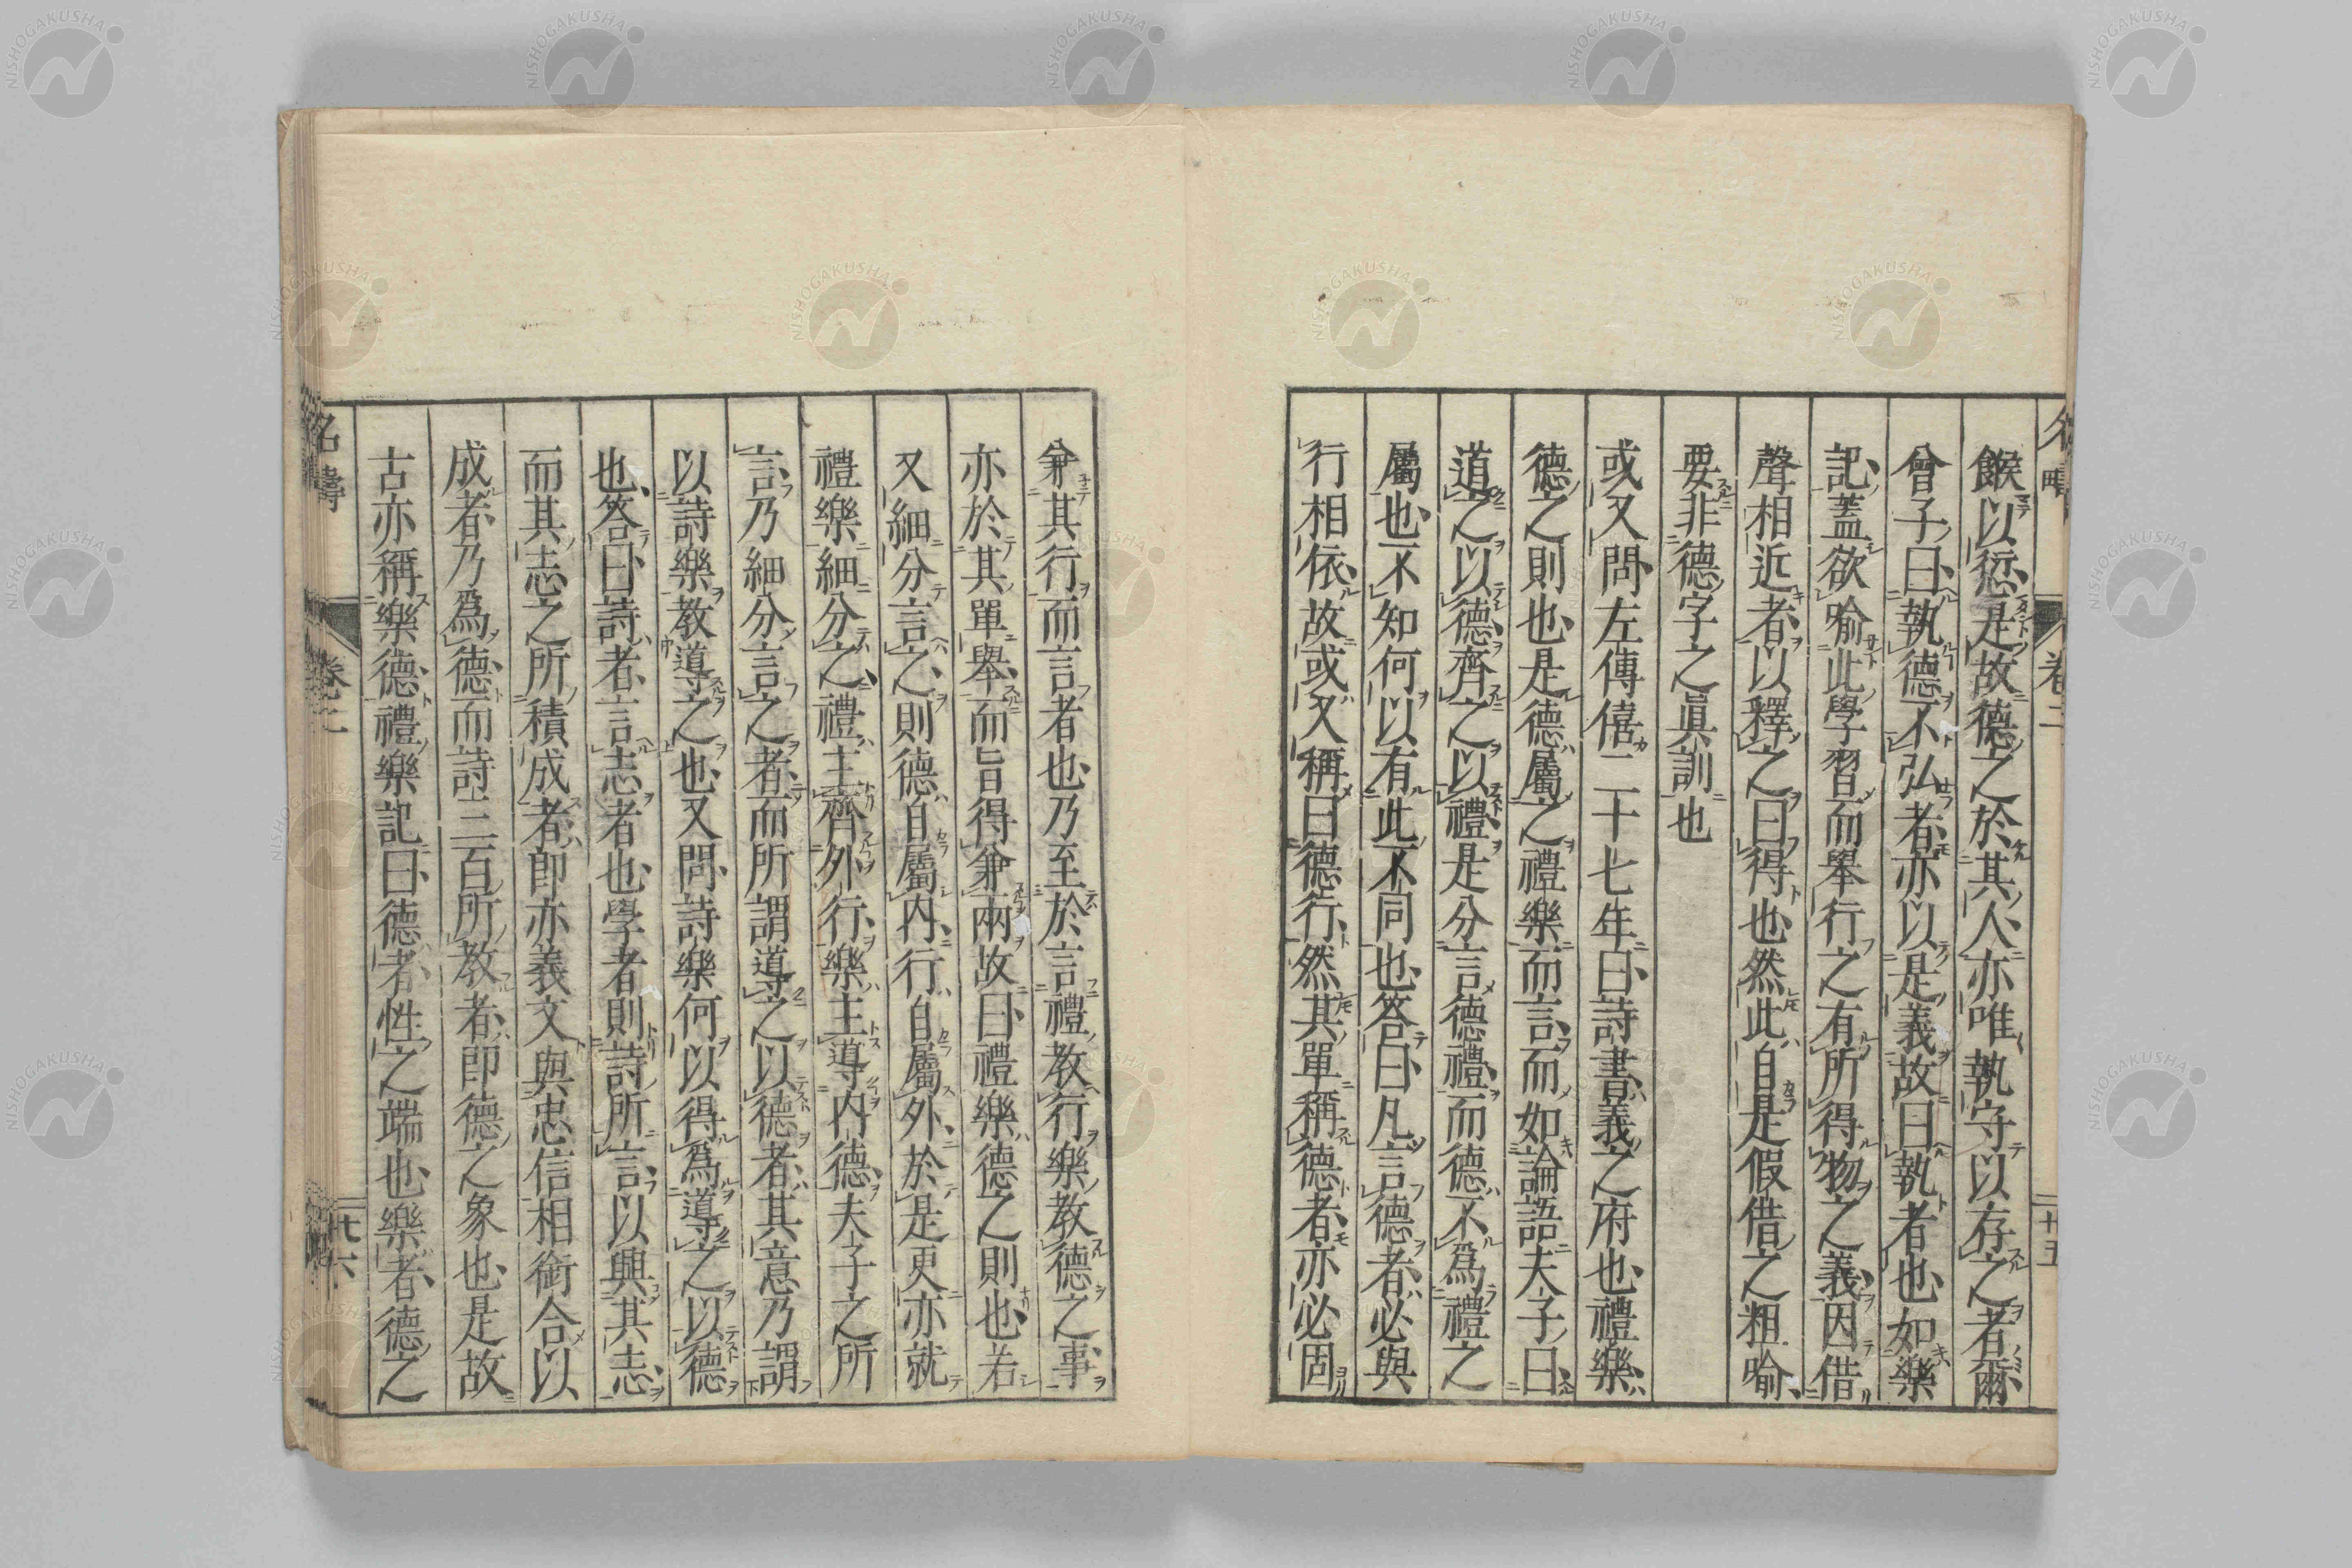 餱以愆是故德之於其人亦唯執守以存之者爾
曾子曰執德不弘者亦以是義故曰執者也如樂
記蓋欲喻此學習而舉行之有所得物之義因借
聲相近者以釋之曰得也然此自是假借之粗喻
要非德字之眞訓也
或又問左傳僖二十七年曰詩書義之府也禮樂
德之則也是德屬之禮樂而言而如論語夫子曰
道之以德齊之以禮是分言德禮而德不爲禮之
屬也不知何以有此不同也答曰凡言德者必與
行相依故或又稱曰德行然其單稱德者亦必固
兼其行而言者也乃至於言禮教行樂教德之事
亦於其單舉而旨得兼兩故曰禮樂德之則也若
又細分言之則德自屬内行自屬外於是更亦就
禮樂細分之禮主齊外行樂主導内德夫子之所
言乃細分言之者而所謂導之以德者其意乃謂
以詩樂教導之也又問詩樂何以得爲導之以德
也答曰詩者言志者也學者則詩所言以興其志
而其志之所積成者即亦義文與忠信相銜合以
成者乃爲德而詩三百所教者即德之象也是故
古亦稱樂德禮樂記曰德者性之端也樂者德之
名疇
卷二
十五
名疇
卷二
十六
NISHOGAKUSHA